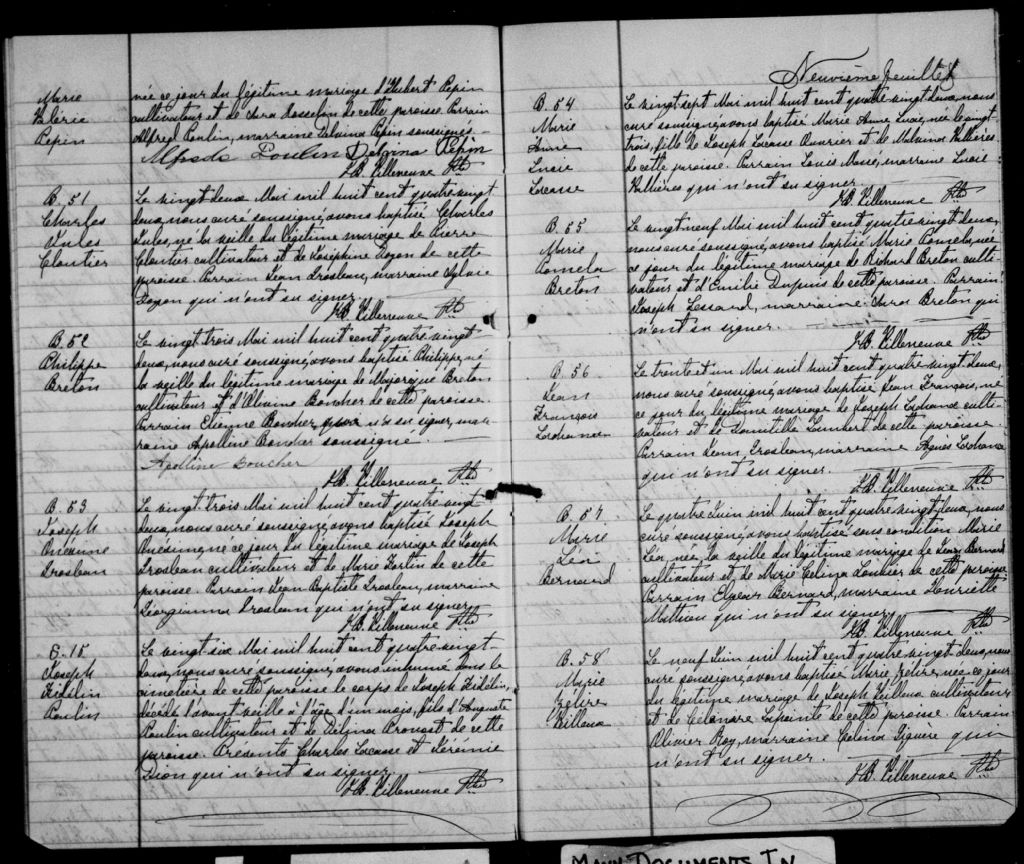 Marie
Valerie
Pepin
née ce jour du légitime mariage d'Hubert Pepin
cultivateur et de de cette paroisse. Parrain
Alfred Poulin, marraine Delvina Pepin soussignés.
Alfrede Poulin Delvina Pepin
J.B. Villeneuve Ptre
B. 51
Charles
Jules
Cloutier
Le vingt deux Mai mil huit cent quatre vingt
deux, nous curé soussigné, avons baptisé Charles
Jules, né la veille du légitime mariage de Pierre
Cloutier cultivateur et de Joséphine Doyon de cette
paroisse. Parrain Jean Grosleau, marraine Sylvie
Doyon qui n'ont su signer.
J.B. Villeneuve Ptre
B. 52
Philippe
Breton
Le vingt trois Mai mil huit cent quatre vingt
deux, nous curé soussigné, avons baptisé Philippe, né
la veille du légitime mariage de Majorique Breton
cultivateur et d'Alvaine Boucher de cette paroisse.
Parrain Etienne Boucher, n'a su signer, mar-
raine Apolline Boucher soussignée.
Apolline Boucher
J.B. Villeneuve Ptre
B. 53
Joseph
Grosleau
Le vingt trois Mai mil huit cent quatre vingt
deux, nous curé soussigné, avons baptisé Joseph
Onésime, né ce jour du légitime mariage de Joseph
Grosleau cultivateur et de Marie Fortin de cette
paroisse. Parrain Jean Baptiste Grosleau, marraine
Georgianna Grosleau qui n'ont su signer.
J.B. Villeneuve Ptre
S. 15
Joseph
Fidélin
Poulin
Le vingt six Mai mil huit cent quatre vingt-
deux, nous curé soussigné, avons inhumé dans le
cimetière de cette paroisse le corps de Joseph Fidélin,
décédé l'avant veille à l'âge d'un mois, fils d'Auguste
Poulin cultivateur et de Délina Pronost de cette
paroisse. Présents Charles Lacasse et Jérémie
Dion qui n'ont su signer.
J.B. Villeneuve Ptre
Neuvième feuillet
B. 54
Marie
Anne
Lucie
Lacasse
Le vingt sept Mai mil huit cent quatre vingt deux, nous
curé soussigné, avons baptisé Marie Anne Lucie, née le vingt
trois, fille de Joseph Lacasse Ouvrier et de Malvina Vallières
de cette paroisse. Parrain Louis Massé, marraine Lucie
Vallières qui n'ont su signer.
J.B. Villeneuve Ptre
B. 55
Marie
Pomela
Breton
Le vingt neuf Mai mil huit cent quatre vingt deux,
nous curé soussigné, avons baptisé Marie Pomela, née
ce jour du légitime mariage de Richard Breton culti-
vateur et d'Emilie Dupuis de cette paroisse. Parrain
Joseph Lessard, marraine Breton qui
n'ont su signer.
J.B. Villeneuve Ptre
B. 56
Jean
François
Lachance
Le trente et un Mai mil huit cent quatre vingt deux,
nous curé soussigné, avons baptisé Jean François, né
ce jour du légitime mariage de Joseph Lachance culti-
vateur et de Domitille Lambert de cette paroisse.
Parrain Jean Grosleau, marraine Agnès Lachance
qui n'ont su signer.
J.B. Villeneuve Ptre
B. 57
Marie
Léa
Bernard
Le quatre Juin mil huit cent quatre vingt deux, nous
curé soussigné, avons baptisé sous condition Marie
Léa née la veille du légitime mariage de Jean Bernard
cultivateur et de Marie Celina Loubier de cette paroisse
Parrain Elzéar Bernard, marraine Henriette
Mathieu qui n'ont su signer.
J.B. Villeneuve Ptre
B. 58
Marie
Zélire
Veilleux
Le neuf Juin mil huit cent quatre vingt deux, nous
curé soussigné, avons baptisé Marie Zélire, née ce jour
du légitime mariage de Joseph Veilleux cultivateur
et de Célandre Lapointe de cette paroisse. Parrain
Olivier Roy, marraine Celina Giguere qui
n'ont su signer.
J.B. Villeneuve Ptre
MANY DOCUMENTS IN